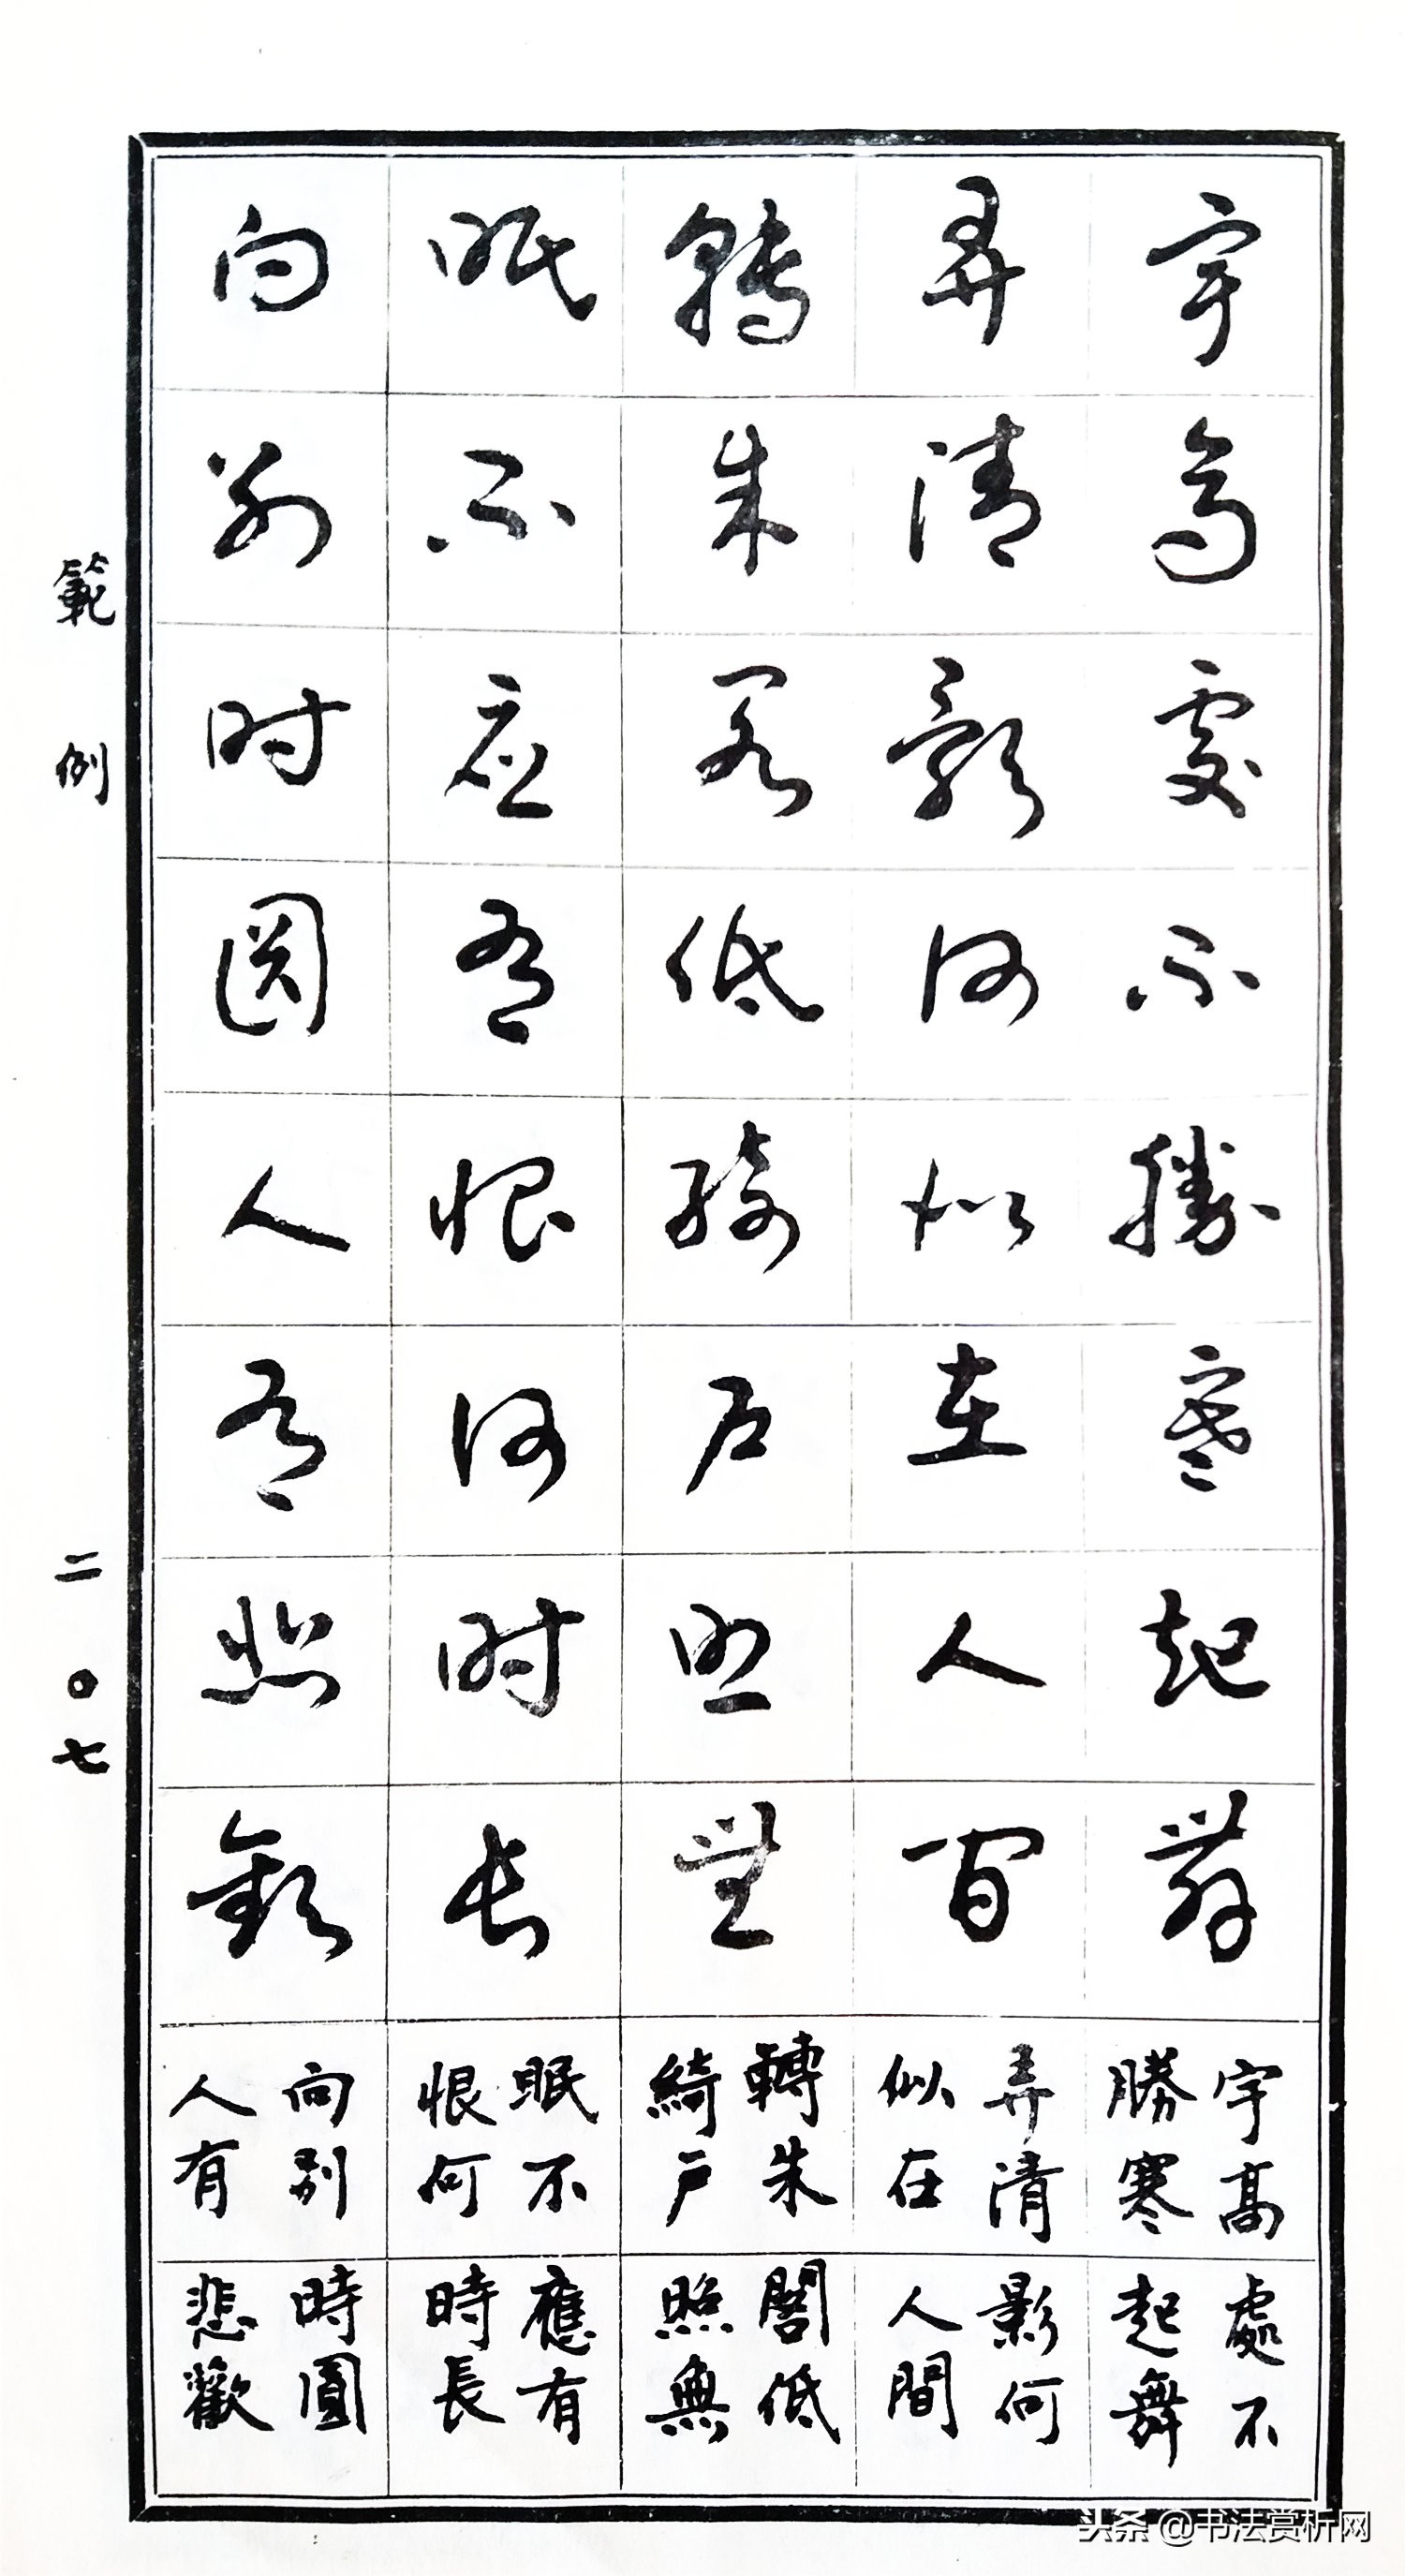 宇高處不勝寒起舞
弄清影何似在人間
轉朱閣低綺戶照無
眠不應有恨何時長
向別時圓人有悲歡
宇高處不
勝寒起舞
弄清影何
似在人間
轉朱閣低
綺戶照無
眠不應有
恨何時長
向別時圓
人有悲歡
範例
二〇七
头条@书法赏析网